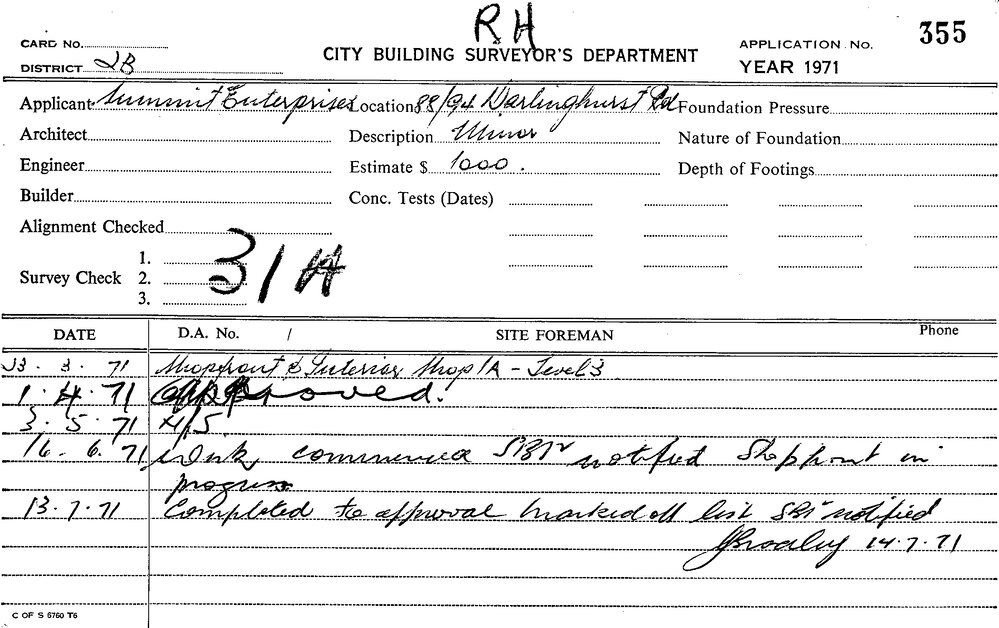 RH
CARD No. CITY BUILDING SURVEYOR'S DEPARTMENT APPLICATION No. 355
DISTRICT 2B YEAR 1971
Applicant Summit Enterprises Location 88/94 Darlinghurst Rd Foundation Pressure
Architect Description Minor Nature of Foundation
Engineer Estimate $ 1000. Depth of Footings
Builder Conc. Tests (Dates)
Alignment Checked
Survey Check 1. 2. 3. 31A
DATE D.A. No. / SITE FOREMAN Phone
23. 3. 71 Shopfront & Interior Shop 1A - Level 3
1. 4. 71 Approved.
3. 5. 71 4/5
16. 6. 71 Work commenced notified Shopfront in
progress
13. 7. 71 Completed to approval marked off list notified
14.7.71
C OF S 6760 T6